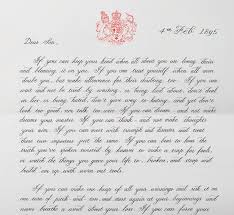 4th Feb. 1895
Dear Sir,
If you can keep your head when all about you are losing theirs
and blaming it on you, If you can trust yourself when all men
doubt you, but make allowance for their doubting too. If you can
wait and not be tired by waiting, or being lied about, don't deal
in lies or being hated, don't give way to hating, and yet don't
look too good nor talk too wise. If you can dream - and not make
dreams your master. If you can think - and not make thoughts
your aim. If you can meet with triumph and disaster and treat
these two impostors just the same. If you can bear to hear the
truth you've spoken twisted by knaves to make a trap for fools,
or watch the things you gave your life to, broken, and stoop and
build em up with worn out tools.
If you can make one heap of all your winnings and risk it on
one turn of pitch and toss and start again at your beginnings and
never breathe a word about your loss. If you can force your